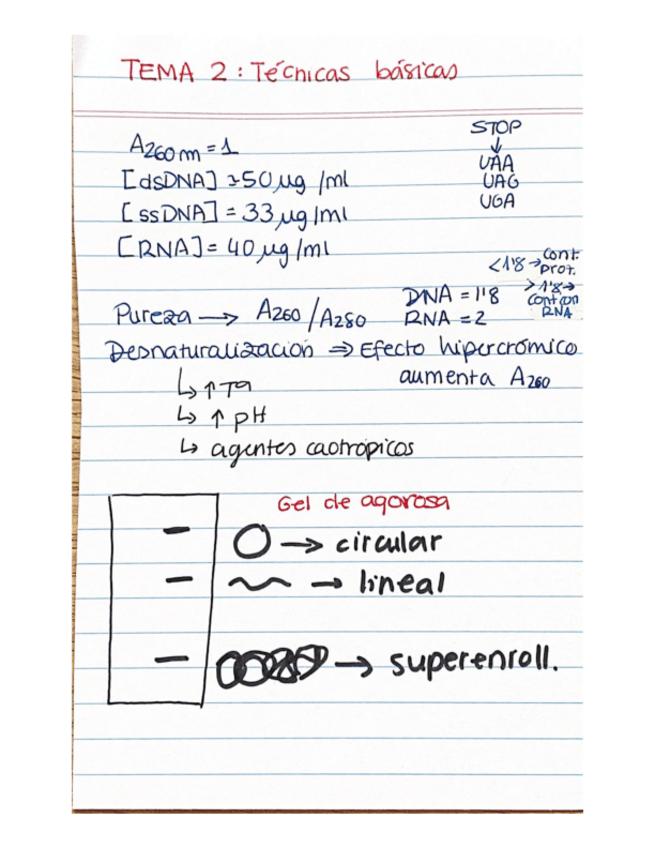 TEMA 2: Técnicas básicas
A260m = 1
[dsDNA] ≥50 µg/ml
[ssDNA] = 33 µg/ml
[RNA] = 40 µg/ml
STOP
↓
UAA
UAG
UGA
<1'8 → cont. prot.
>1'8 → cont con RNA
Pureza → A260/A280
DNA = 1'8
RNA = 2
Desnaturalización ⇒ Efecto hipercrómico
aumenta A260
↳ ↑ Tª
↳ ↑ pH
↳ agentes caotrópicos
Gel de agorosa
→ circular
→ lineal
→ superenroll.